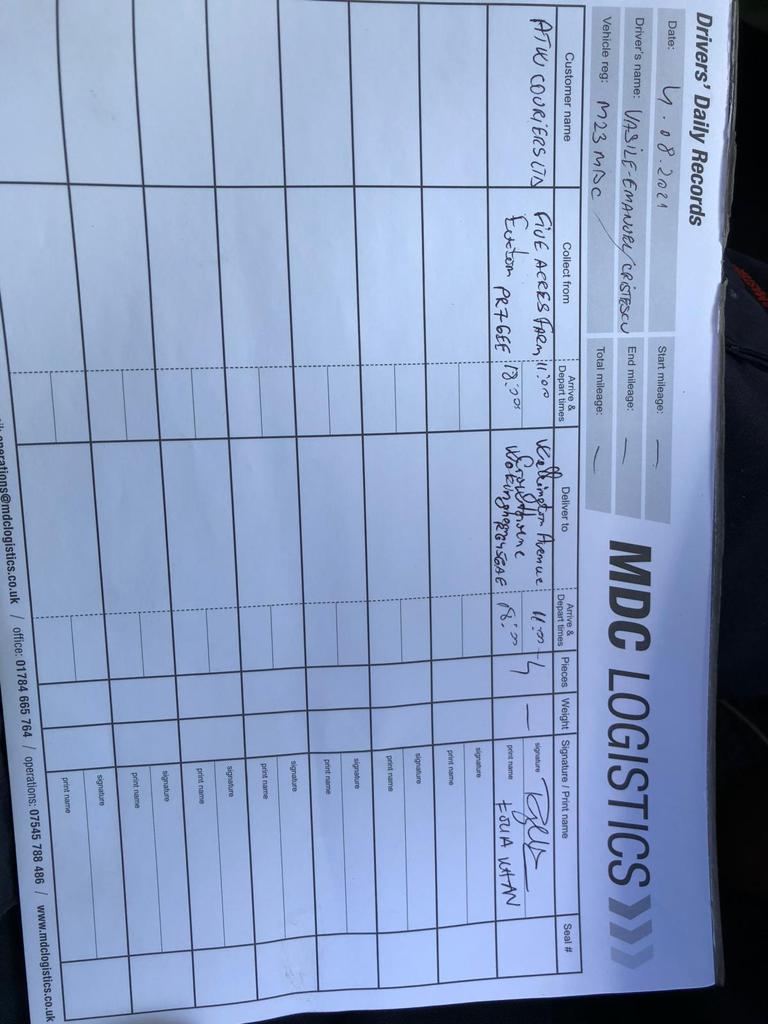 Drivers' Daily Records
MDC LOGISTICS
Date: 4.08.2021
Start mileage: —
Driver's name: VASILE-EMANUEL CRISTESCU
End mileage: —
Vehicle reg: M23 MDC
Total mileage: —
Customer name
Collect from
Arrive & Depart times
Deliver to
Arrive & Depart times
Pieces
Weight
Signature / Print name
Seal #
ATW COURIERS LTD
FIVE ACRES FARM
Euxton PR7 6EE
11:00
18:00
Avenue
Wokingham
11:00
18:00
4
—
signature
print name
KHAN
signature
print name
signature
print name
signature
print name
signature
print name
signature
print name
signature
print name
signature
print name
operations@mdclogistics.co.uk / office: 01784 665 764 / operations: 07545 788 486 / www.mdclogistics.co.uk